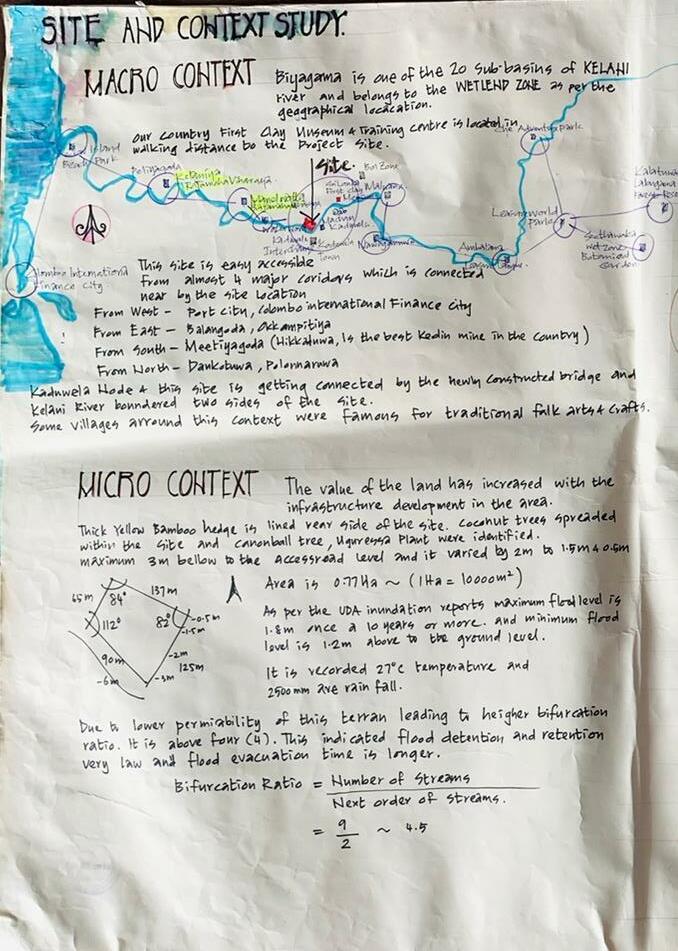 SITE AND CONTEXT STUDY.
MACRO CONTEXT
Biyagama is one of the 20 sub-basins of KELANI
river and belongs to the WETLEND ZONE as per the
geographical locacation.
our country First Clay Museum & Training centre is located in
walking distance to the Project Site.
The Adventure Park
Site.
Island
Beach Park
Peliyagoda
Kelaniya
Rajamaha Viharaya
BOI Zone
Sri Lanka
First Clay
Malwana
Kaduwela
Kaduwela
Interchange
Kaduwela
Town
Nawagamuwa
Leasureworld
Park
Seethawaka
Wet Zone
Botanical
Garden
Colombo International
Finance city
This site is easy accessible
From almost 4 major coridors which is connected
near by the site location
From West - Port city, colombo international Finance city
From East - Balangoda, Okkampitiya
From South - Meetiyagoda (Hikkaduwa, Is the best Kedin mine in the country)
From North - Dankotuwa, Polonnaruwa
Kaduwela Node & this site is getting connected by the newly constructed bridge and
Kelani River boundered two sides of the site.
Some villages arround this context were famous for traditional falk arts & crafts.
MICRO CONTEXT
The value of the land has increased with the
infrastructure development in the area.
Thick Yellow Bamboo hedge is lined rear side of the site. coconut trees spreaded
within the site and canonball tree, Uguressa Plant were identified.
maximum 3m bellow to the accessroad level and it varied by 2m to 1.5m & 0.5m
65m
84°
137m
112°
82°
-0.5m
-1.5m
90m
-6m
-2m
125m
-3m
Area is 0.77Ha ~ (1Ha = 10000m²)
As per the UDA inundation reports maximum flood level is
1.8m once a 10 years or more. and minimum flood
level is 1.2m above to the ground level.
It is recorded 27°c temperature and
2500mm ave rain fall.
Due to lower permiability of this terran leading to heigher bifurcation
ratio. It is above four (4). This indicated flood detention and retention
very law and flood evacuation time is longer.
Bifurcation Ratio = Number of Streams
Next order of streams.
= 9
2
~ 4.5